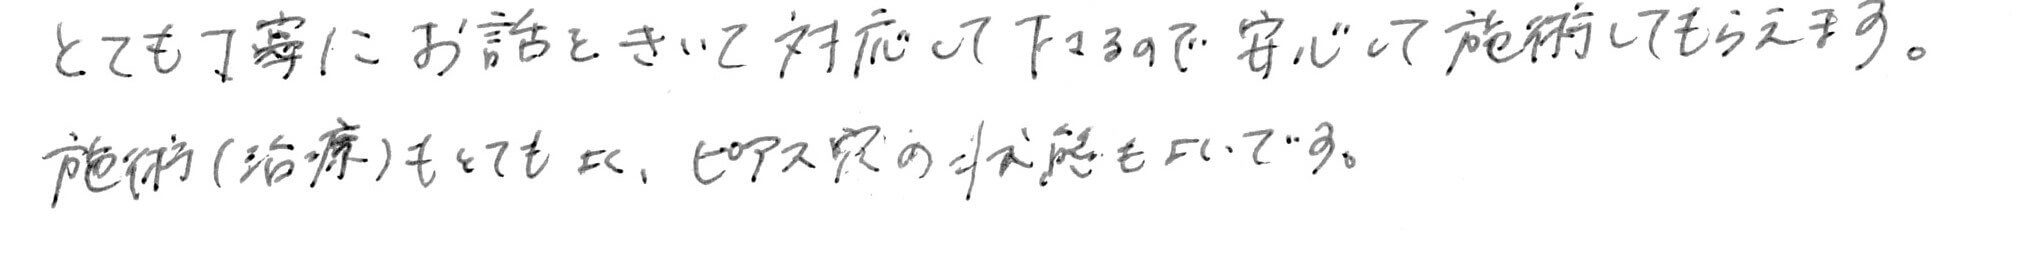 とても丁寧にお話をきいて対応して下さるので安心して施術してもらえます。
施術(治療)もとてもよく、ピアス穴の状態もよいです。